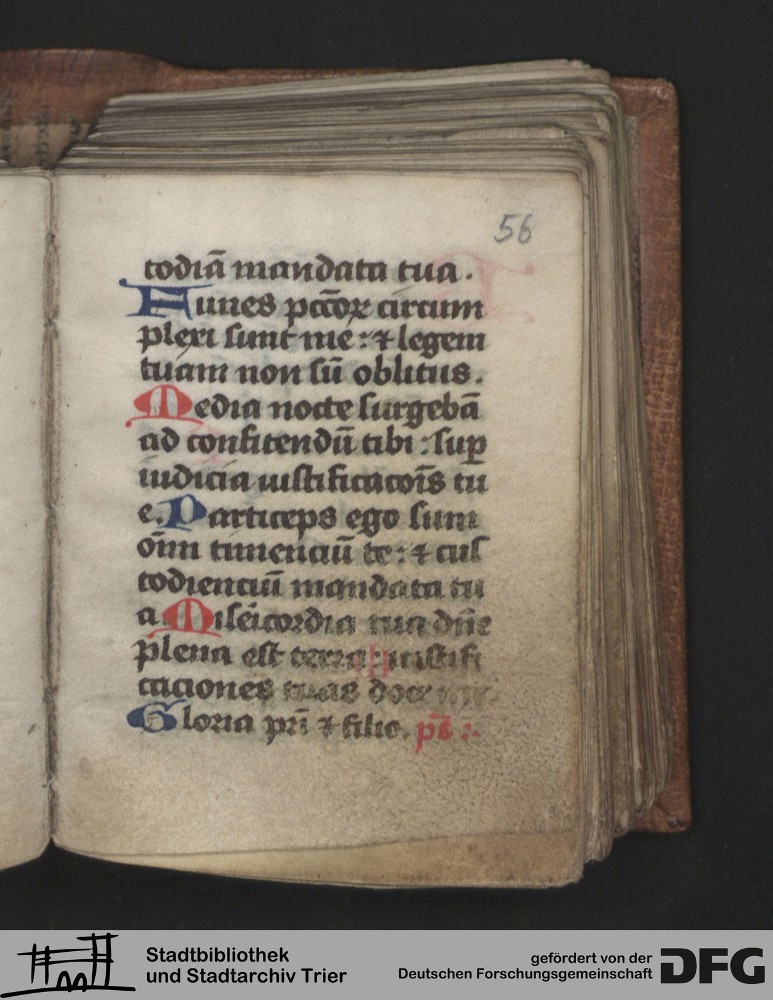 56
todiā mandata tua.
Funes pcc̄oꝝ circum
plexi sunt me: ⁊ legem
tuam non sū oblitus.
Media nocte surgebā
ad confitendū tibi: sup̄
iudicia iustificacoīs tu
e. Particeps ego sum
om̄i timenciū te: ⁊ cus
todienciū mandata tu
a Mis̄eicordia tua dn̄e
plena est terra: iustifi
caciones tuas doce
Gloria pr̄i ⁊ filio. ps̄:
Stadtbibliothek
und Stadtarchiv Trier
gefördert von der
Deutschen Forschungsgemeinschaft
DFG